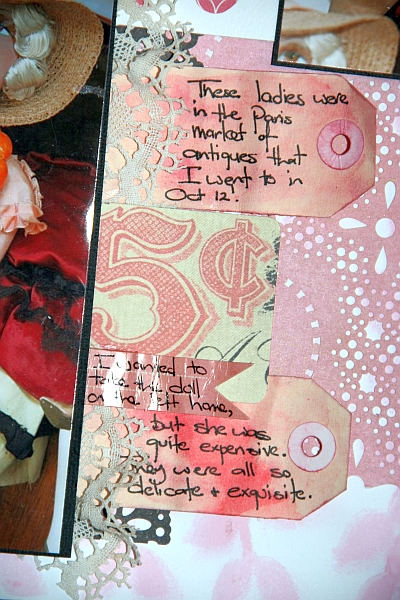 These ladies were
in the Paris
market of
antiques that
I went to in
Oct 12.
5¢
I wanted to
take this doll
on the left home,
but she was
quite expensive.
They were all so
delicate & exquisite.